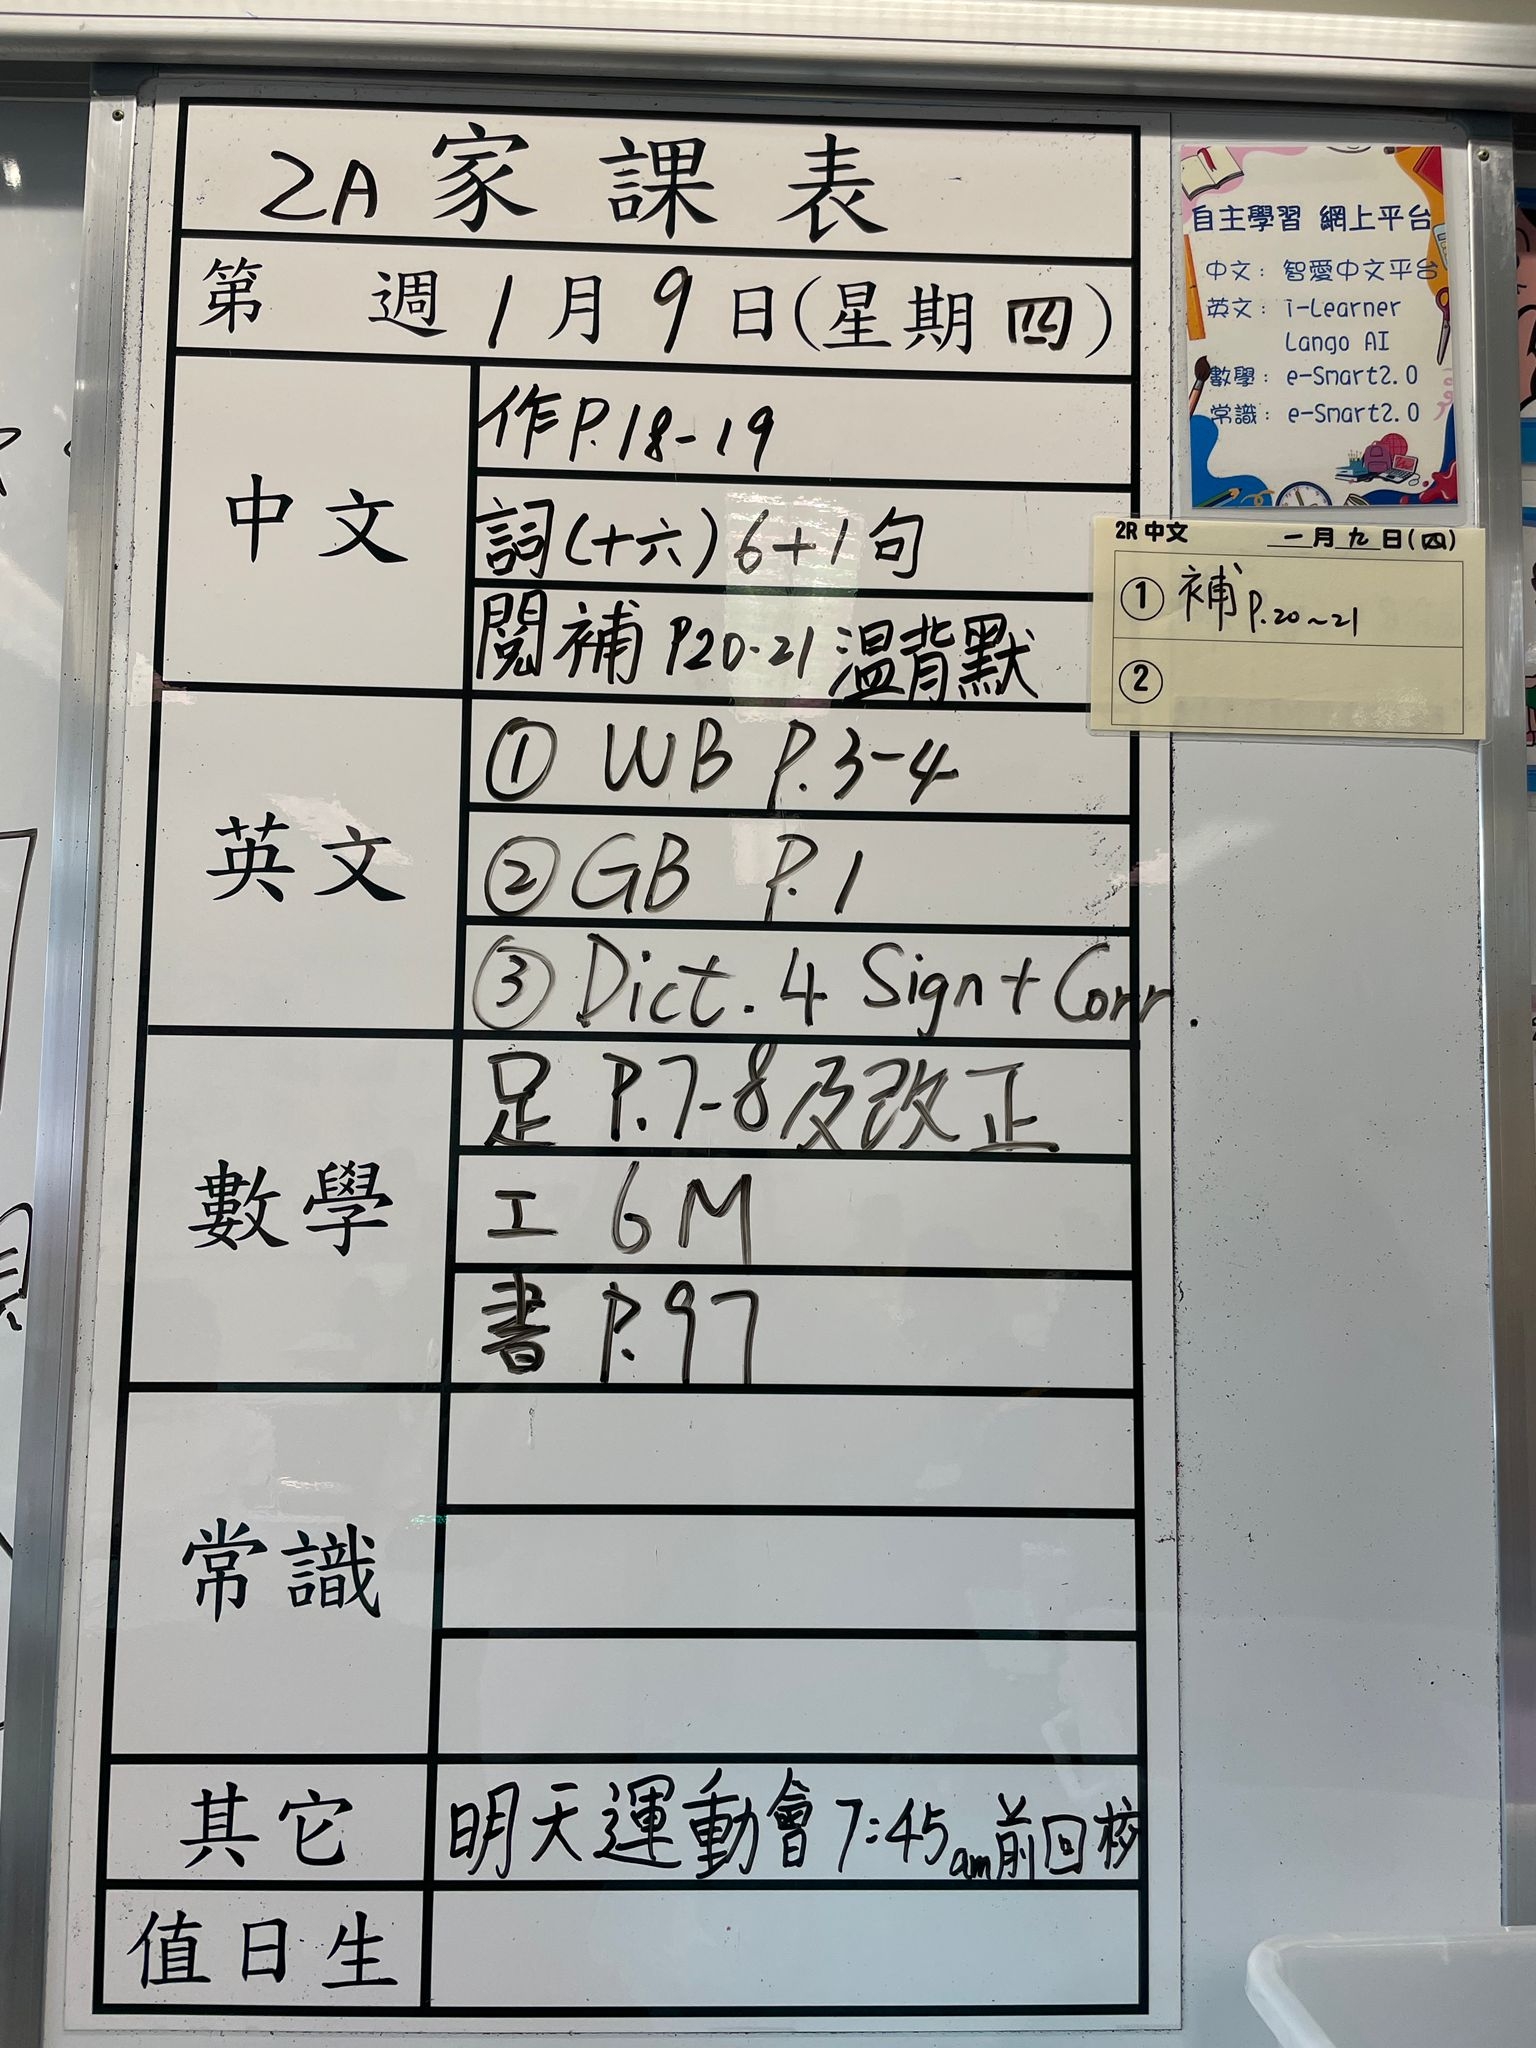 2A 家課表
第 週 1月9日(星期四)
中文
作P.18-19
詞(十六)6+1句
閱補P20-21溫背默
英文
① WB P.3-4
② GB P.1
③ Dict. 4 Sign + Corr.
數學
足 P.7-8及改正
工 6M
書 P.97
常識
其它
明天運動會7:45am前回校
值日生
自主學習 網上平台
中文: 智愛中文平台
英文: i-Learner
Lango AI
數學: e-Smart2.0
常識: e-Smart2.0
2R 中文 一月九日(四)
① 補P.20~21
②